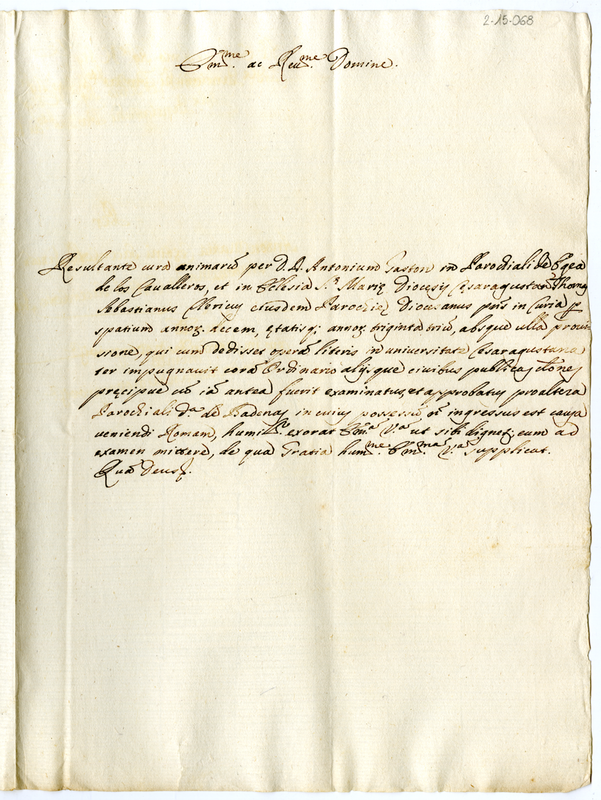 2-15-068
Em.me ac Reu.me Domine.
Resultante cura animarũ per D. D. Antonium Gaston in Parochiali de Egea
de los Cavalleros, et in Eclesia S.te Mariȩ Diocusis Cȩsaraugustan. Thomas
Sebastianus Clericus eiusdem Parochiȩ Diocusanus pens in Curia p
spatium annoꝝ decem, ȩtatisq; annoꝝ triginta triũ, absque ulla provis
sione, qui cum dedisset operã literis in universitate Cȩsaraugustana
ter impugnavit corã Ordinario alijsque civibus publicas
prȩcipue cũ iã antea fuerit examinatus, et approbatus pro altera
Parochiali de Badenas in cuius possessũ nõ ingressus est causa
veniendi Romam, humil. exorat Em.a V.a ut sibi dignet. eum ad
examen mittere, de qua Gratia hum.me Em.ma V.a supplicat.
Quã Deus.